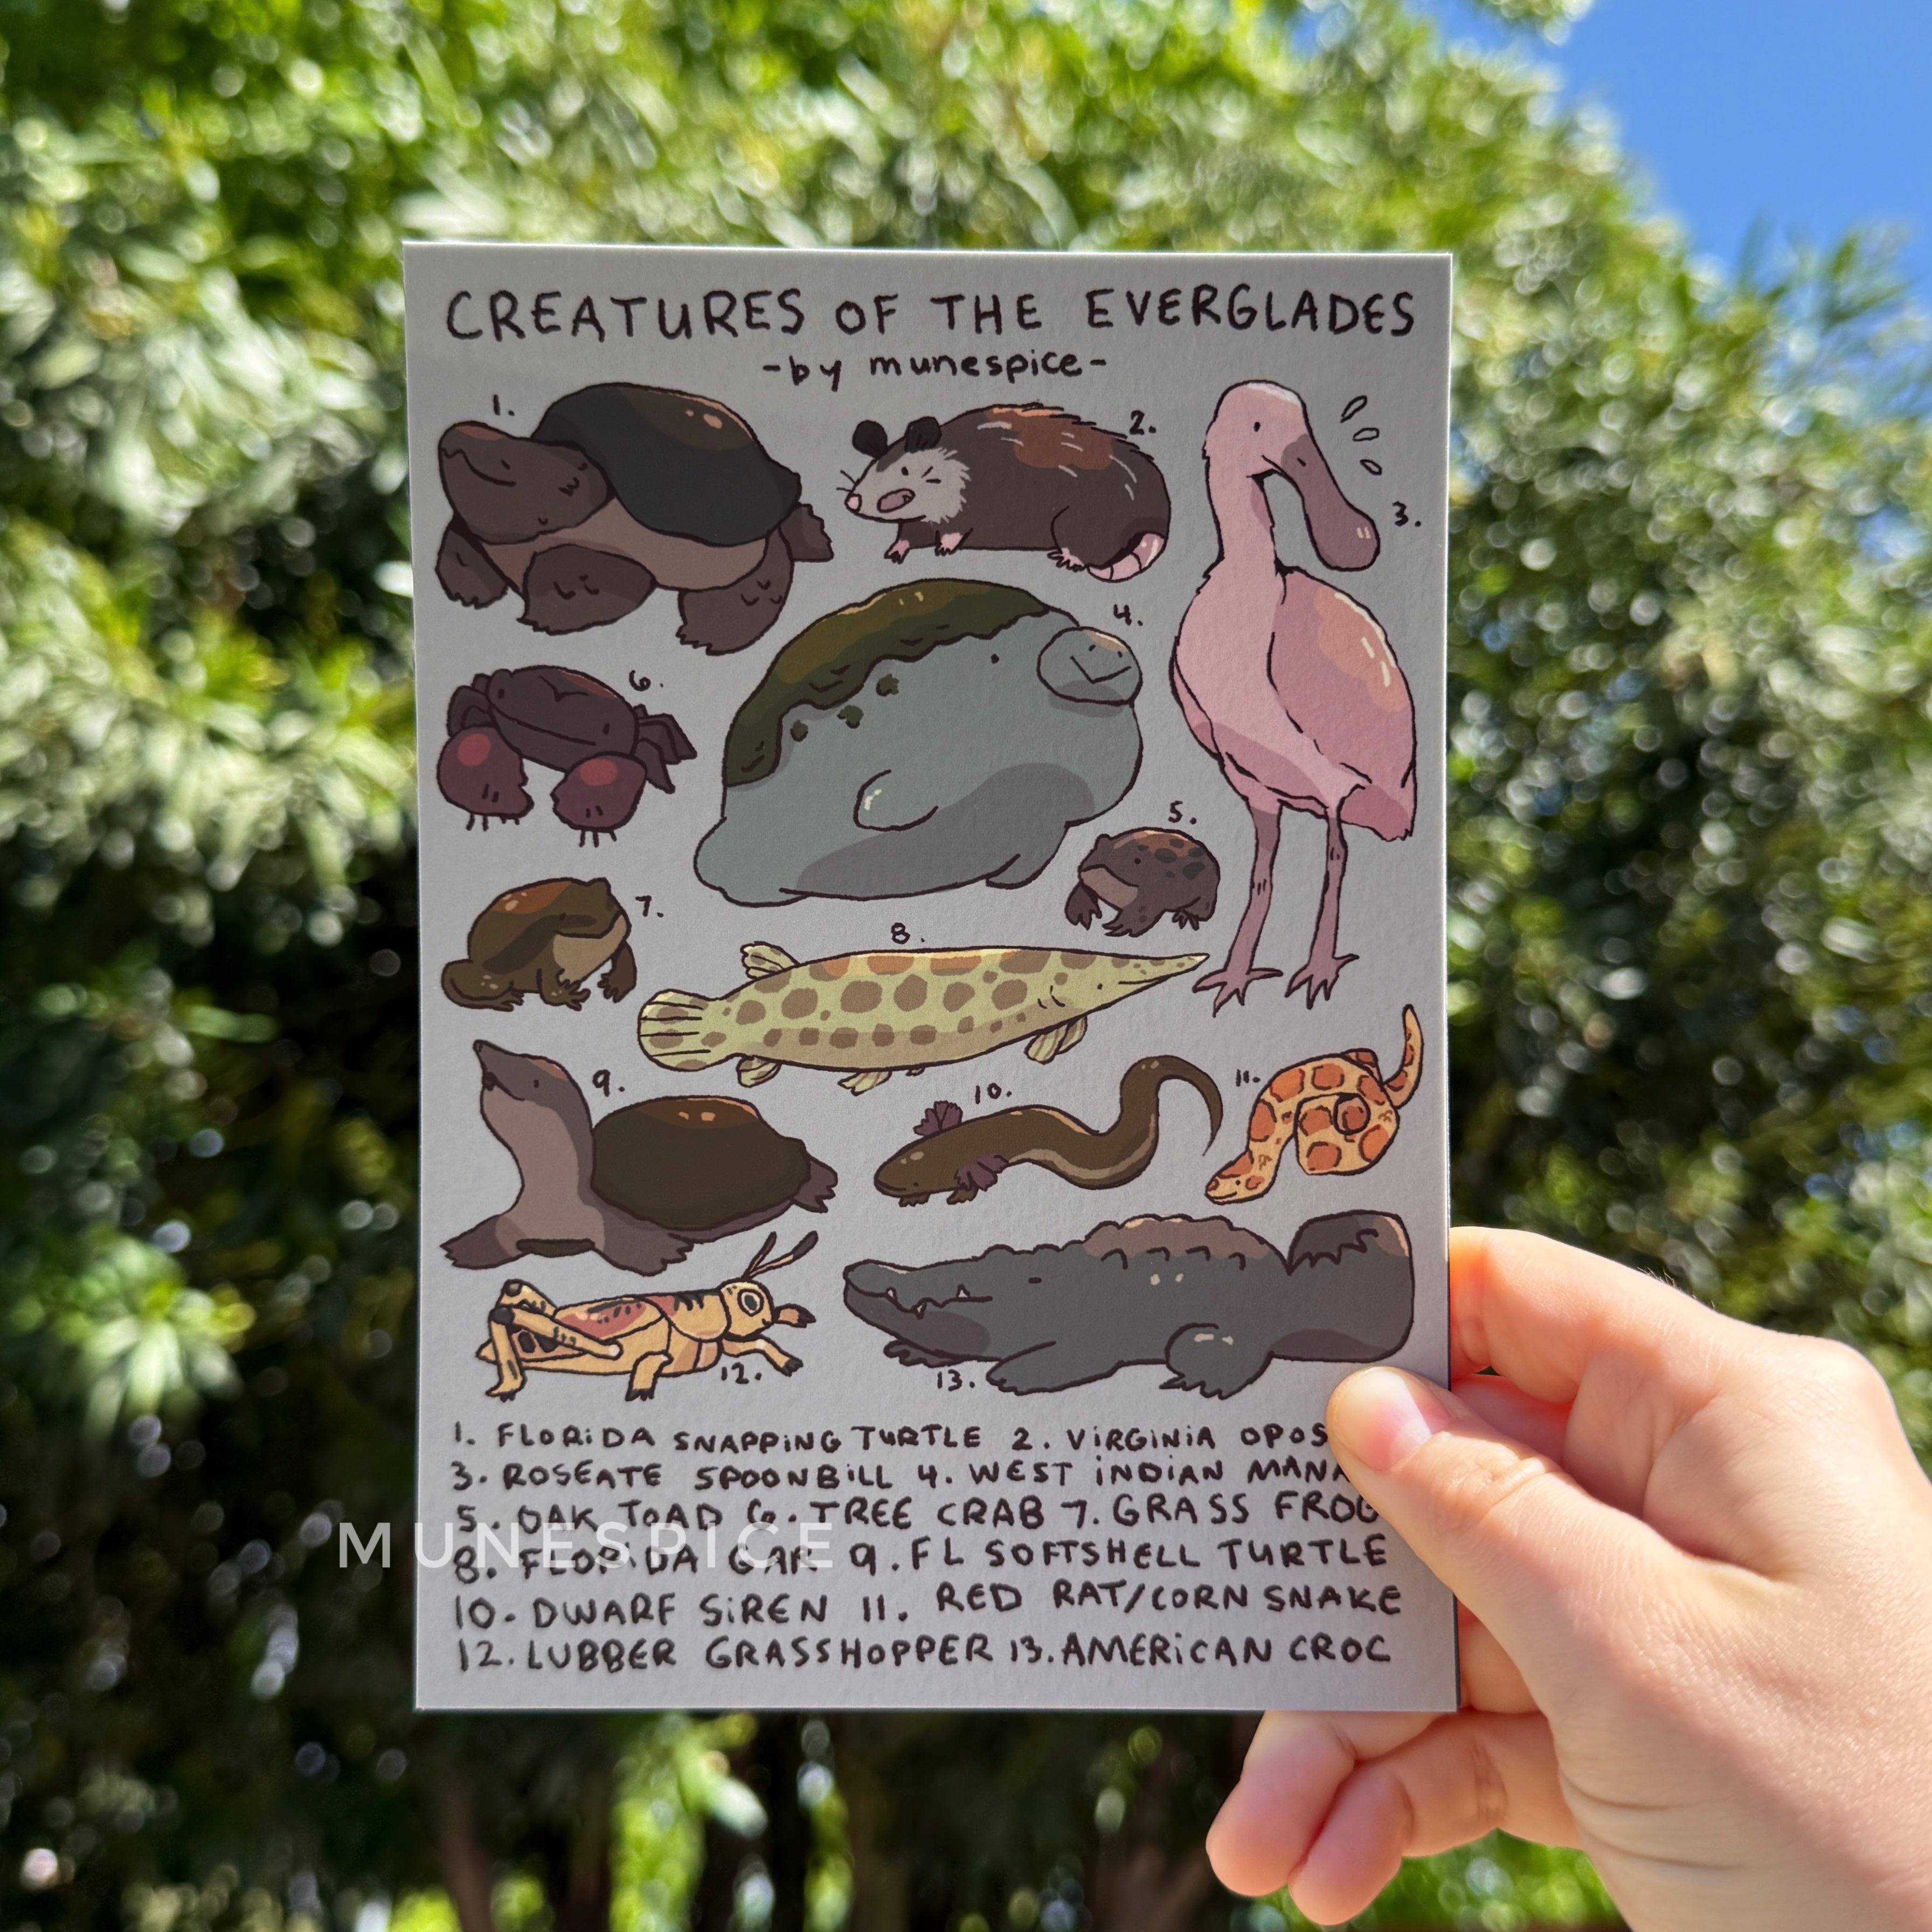 CREATURES OF THE EVERGLADES
-by munespice-
1.
2.
3.
4.
5.
6.
7.
8.
9.
10.
11.
12.
13.
1. FLORiDA SNAPPiNG TURTLE 2. ViRGiNiA OPOS
3. ROSEATE SPOONBiLL 4. WEST iNDiAN MANA
5. OAK TOAD 6. TREE CRAB 7. GRASS FROG
8. FLORiDA GAR 9. FL SOFTSHELL TURTLE
10. DWARF SiREN 11. RED RAT/CORN SNAKE
12. LUBBER GRASSHOPPER 13. AMERiCAN CROC
MUNESPICE